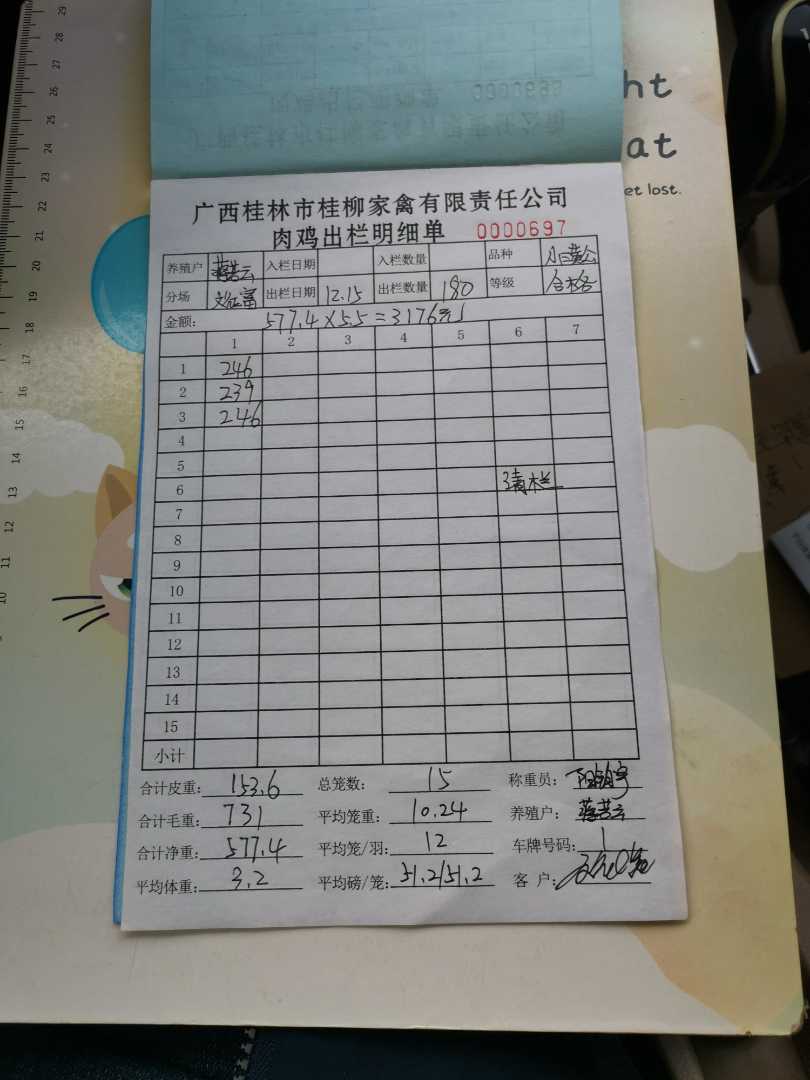 ht
at
et lost.
广西桂林市桂柳家禽有限责任公司
肉鸡出栏明细单 0000697
养殖户 入栏日期 入栏数量 品种
分场 出栏日期 12.15 出栏数量 180 等级 合格
金额: 577.4×5.5=3176元
1 2 3 4 5 6 7
1 246
2 239
3 246
4
5
6 清栏
7
8
9
10
11
12
13
14
15
小计
合计皮重: 153.6 总笼数: 15 称重员:
合计毛重: 731 平均笼重: 10.24 养殖户:
合计净重: 577.4 平均笼/羽: 12 车牌号码: 1
平均体重: 3.2 平均磅/笼: 51.2/51.2 客户:
29
28
27
26
25
24
23
22
21
20
19
18
17
16
15
14
13
12
11
10